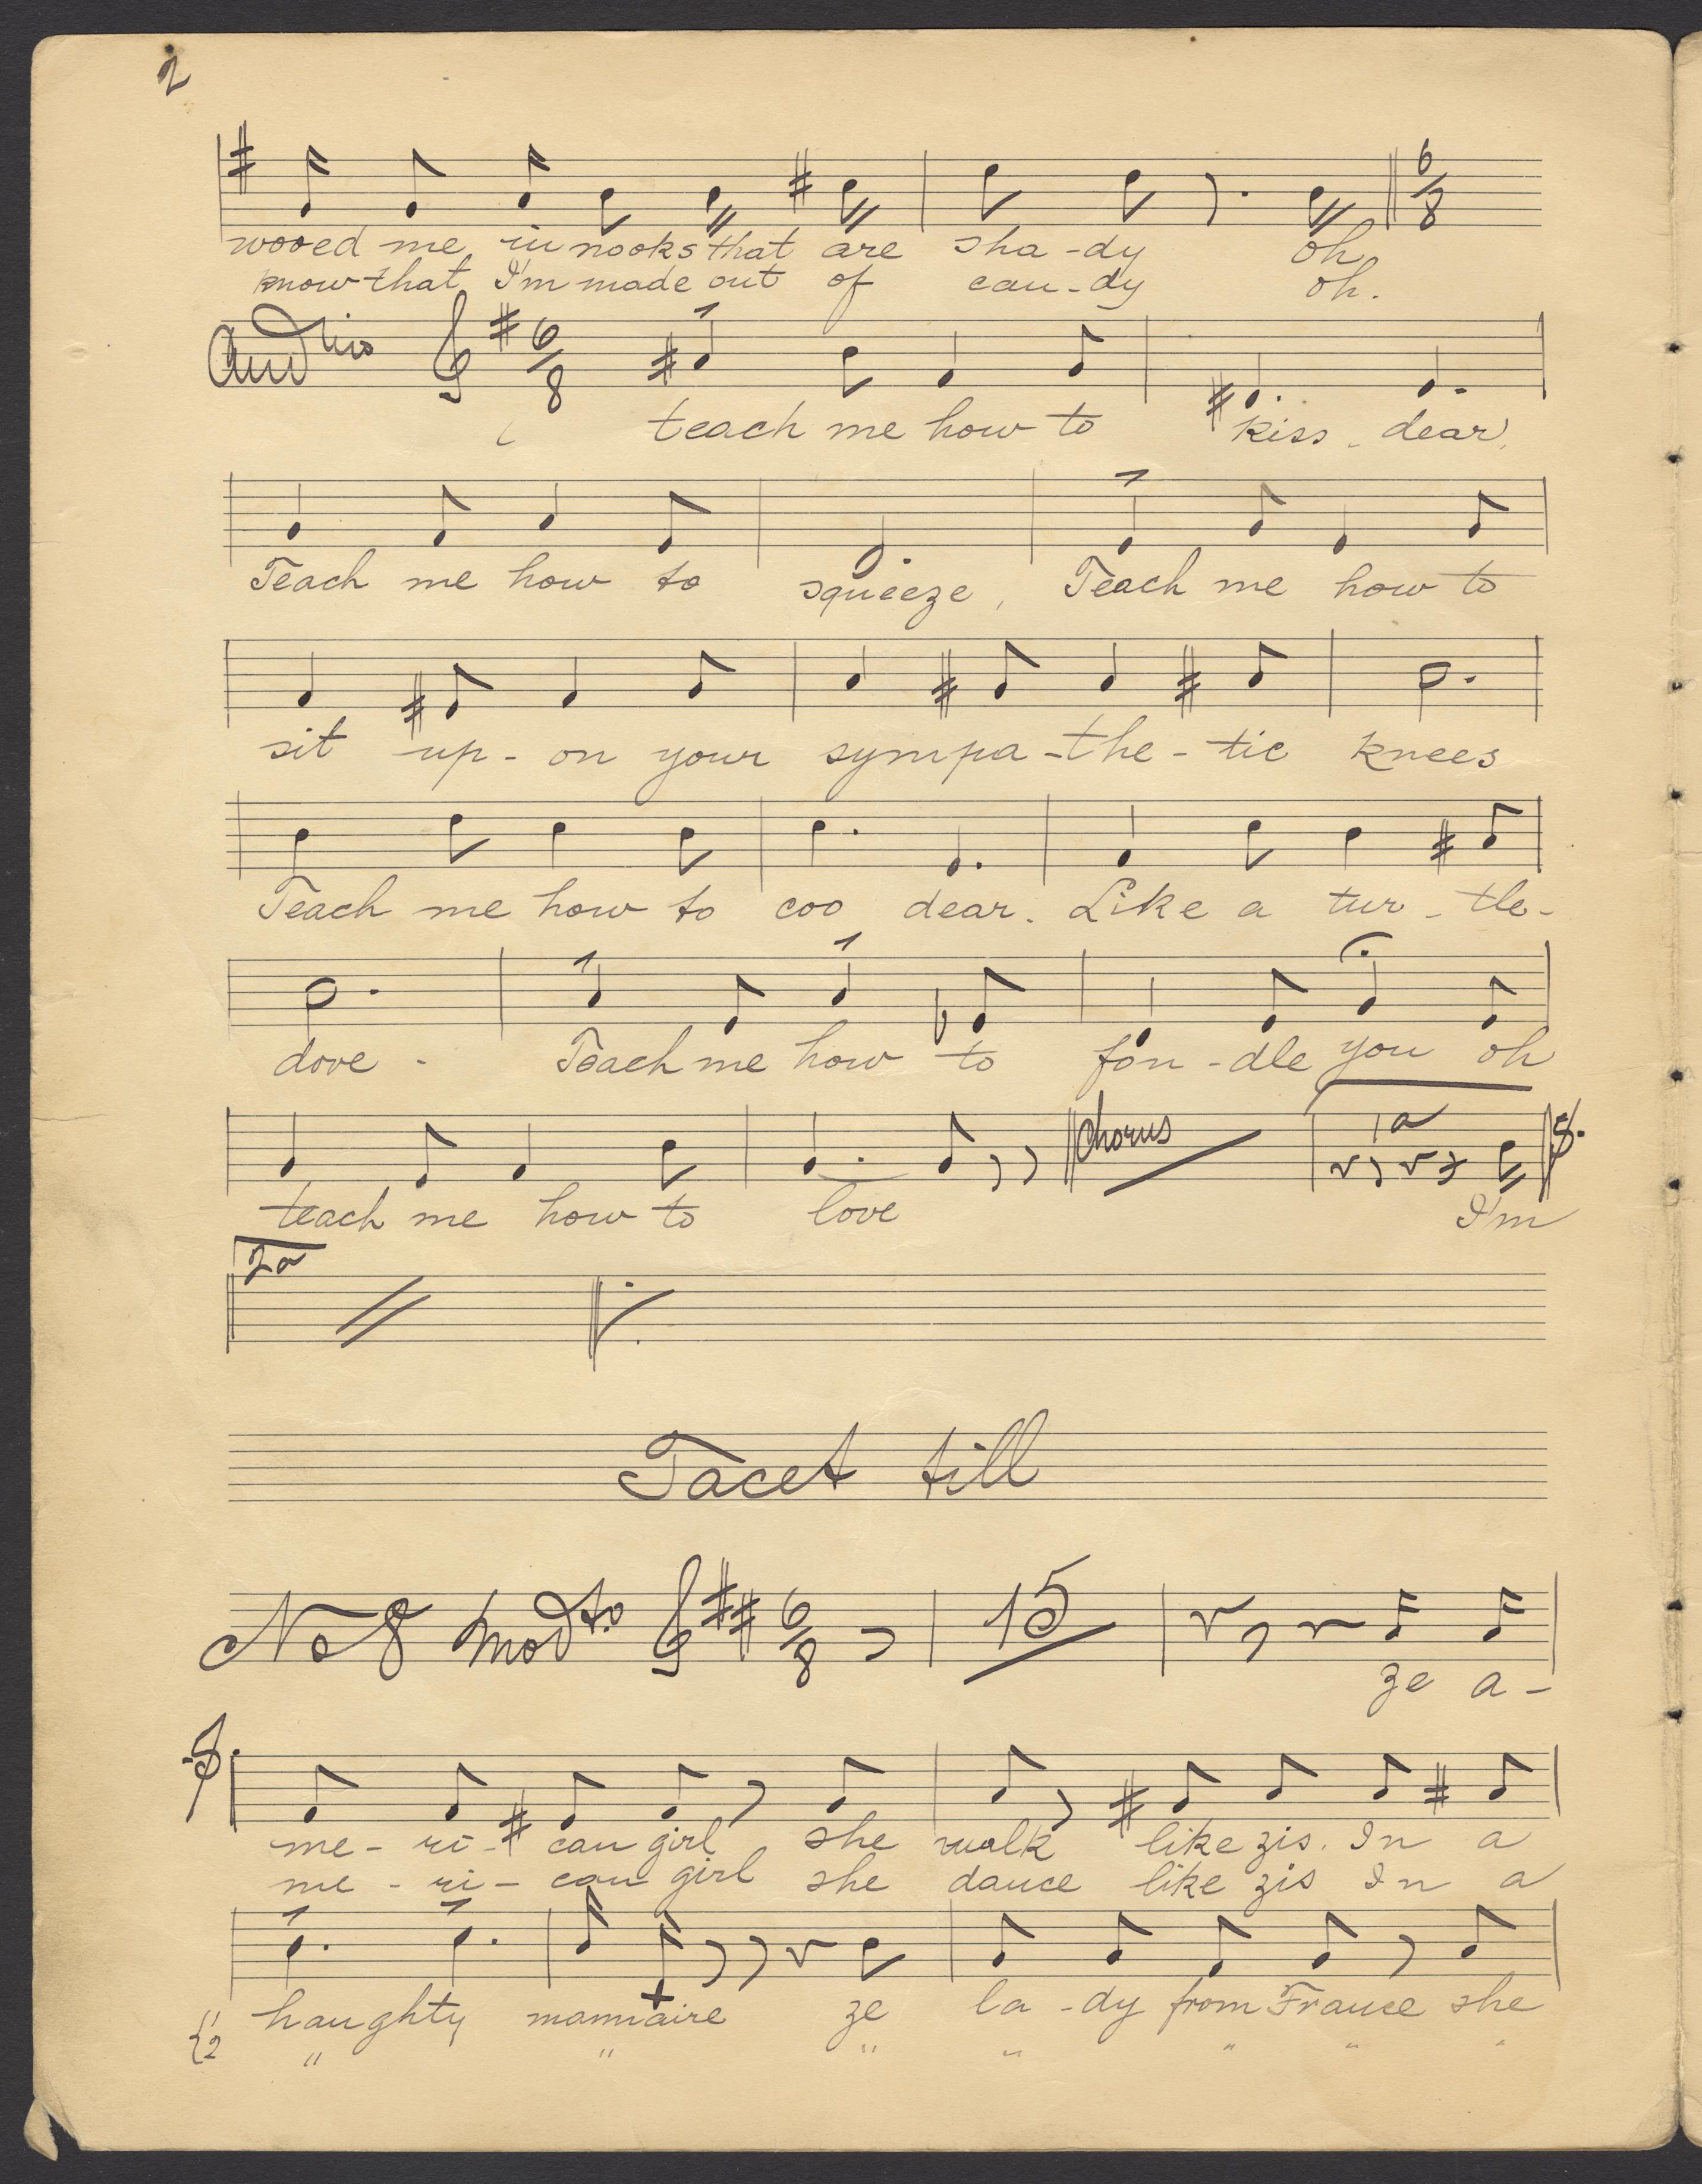 2
wooed me in nooks that are sha-dy oh
know that I'm made out of can-dy oh.
Andino 6/8
teach me how to kiss - dear,
Teach me how to squeeze, Teach me how to
sit up-on your sympa-the-tic knees
Teach me how to coo dear. Like a tur-tle-
dove - Teach me how to fon-dle you oh
Chorus 1a
teach me how to love I'm
2a
Tacet till
No 8 Modto 6/8 15
ze a-
me-ri-can girl she walk like zis. In a
me-ri-can girl she dance like zis In a
{1 haughty mannaire ze la-dy from France she
2 " " " " " " "